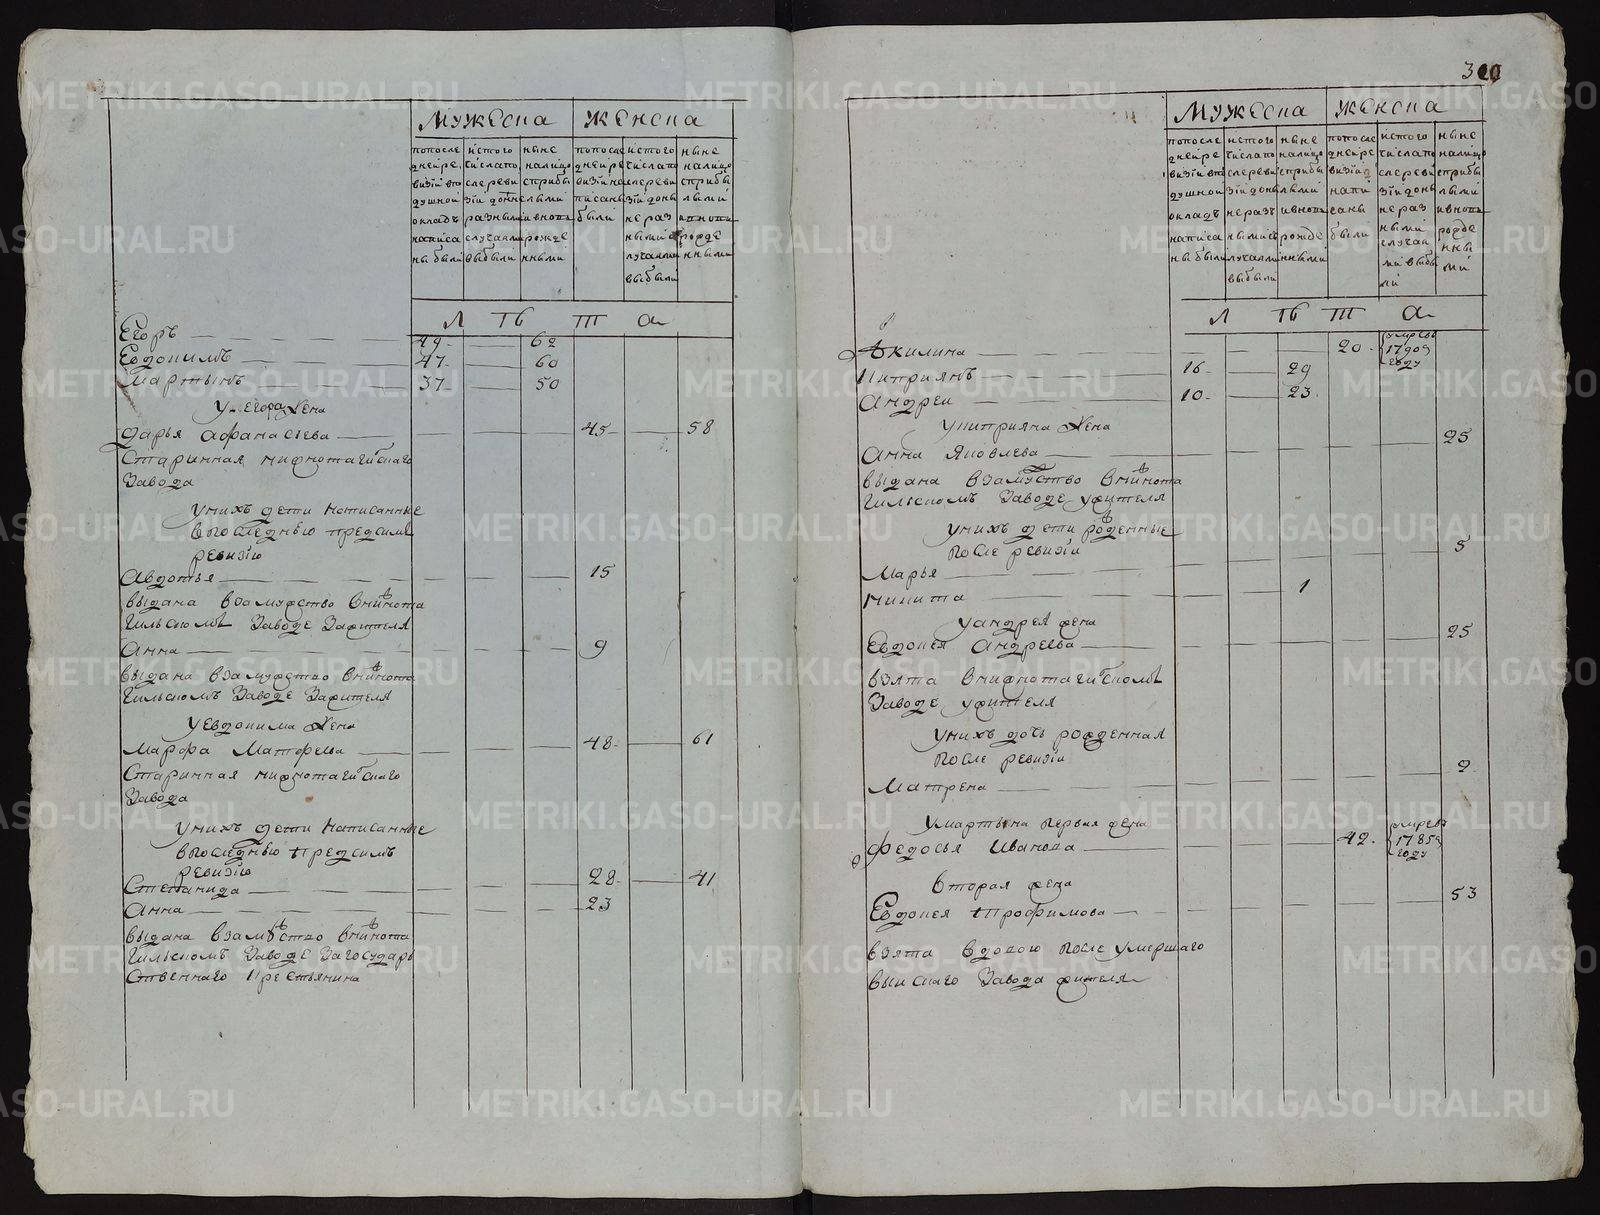 Мужеска Женска
попосле
днеи ре
визiи впо
душнои
окладъ
написа
ны были
истого
числа по
сле реви
зiи до ныне
разными
случаями
выбыли
ныне
налицо
с прибы
лыми
и вновь
рожде
нными
попосле
днеи ре
визiи на
писаны
были
истого
числа по
сле реви
зiи до ны
не раз
ными с
лучаями
выбыли
ныне
налицо
с прибы
лыми
и вновь
рожде
нными
Л Ть Т а
Егоръ 49 62
Евдокимъ 47 60
Мартынъ 37 50
У Егора жена
Дарья Афанасьева 45 58
Старинная нижнотагилскаго
завода
У них дети написанные
в последнюю пред сим
ревизiю
Авдотья 15
выдана в замужство в нижнота
гильском заводе за жителя
Анна 9
выдана в замужство в нижнота
гильскомъ заводе за жителя
У Евдокима жена
Марфа Матфеева 48 61
Старинная нижнотагилскаго
завода
У нихъ дети написанные
в последнюю пред симъ
ревизiю
Степанида 28 41
Анна 23
выдана в замуство в нижнота
гильском заводе за государ
ственнаго крестьянина
300
Мужеска Женска
попосле
днеи ре
визiи впо
душнои
окладъ
написа
ны были
истого
числа по
сле реви
зiи до ны
не разъ
ными с
лучаями
выбыли
ныне
налицо
с прибы
лыми
и вновь
рожде
нными
попосле
днеи ре
визiи
напи
саны
были
истого
числа по
сле реви
зiи до ны
не раз
ными
случаи
ми выбы
ли
ныне
налицо
с прибы
лыми
и вновь
рожде
нны
ми
Л Ть Т а
Акилина 20 умре въ
1790
году
Киприянъ 16 29
Андреи 10 23
У Киприяна жена
Анна Яковлева 25
выдана в замуство в нижнота
гильскомъ заводе у жителя
У нихъ дети рожденные
после ревизiи
Марья 5
Никита 1
У Андрея жена
Евдокея Андреева 25
взята в нижнотагилском
заводе у жителя
У нихъ дочь рожденная
после ревизiи
Матрена 2
У Мартына первая жена
Федосья Иванова 42 умре въ
1785
году
Вторая жена
Евдокея Трофимова 53
взята вдовою после умершаго
выискаго завода жителя
METRIKI.GASO-URAL.RU